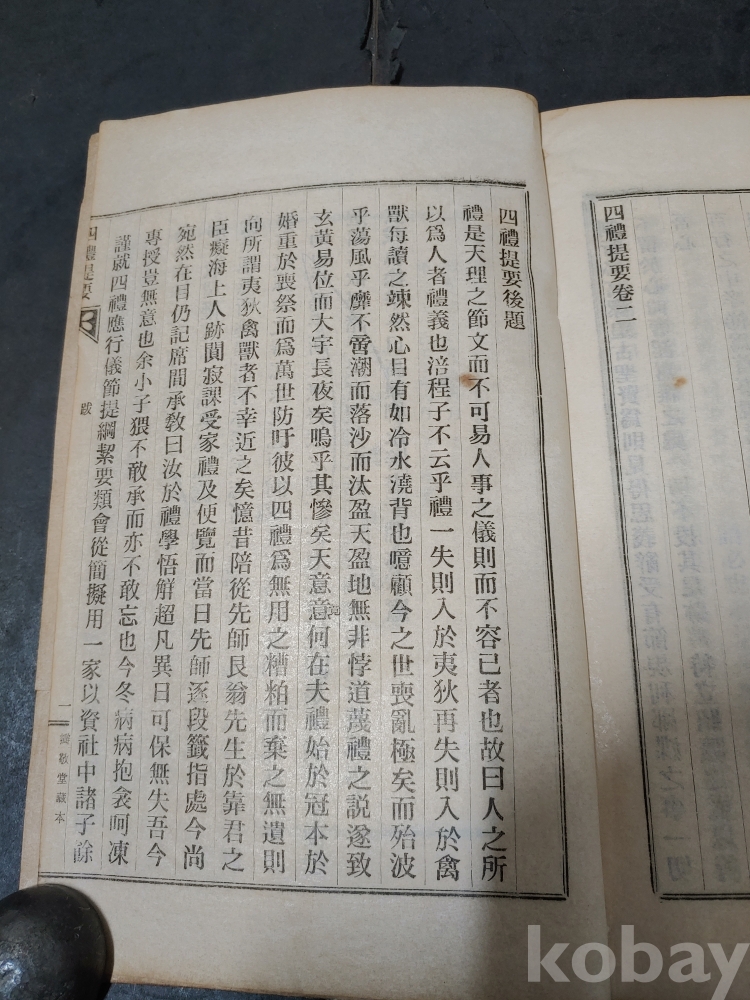 四禮提要卷二
四禮提要後題
禮是天理之節文而不可易人事之儀則而不容已者也故曰人之所
以爲人者禮義也涪程子不云乎禮一失則入於夷狄再失則入於禽
獸每讀之竦然心目有如冷水澆背也噫顧今之世喪亂極矣而殆波
乎蕩風乎靡不啻潮而落沙而汰盈天盈地無非悖道蔑禮之説遂致
玄黃易位而大宇長夜矣嗚乎其慘矣天意意何在夫禮始於冠本於
婚重於喪祭而爲萬世防吁彼以四禮爲無用之糟粕而棄之無遺則
向所謂夷狄禽獸者不幸近之矣憶昔陪從先師艮翁先生於靠君之
臣癡海上人跡闃寂課受家禮及便覽而當日先師逐段籤指處今尚
宛然在目仍記席間承敎曰汝於禮學悟解超凡異日可保無失吾今
專授豈無意也余小子猥不敢承而亦不敢忘也今冬病病抱衾呵凍
謹就四禮應行儀節提綱絜要類會從簡擬用一家以資社中諸子餘
四禮提要
跋
一
敬堂藏本
kobay